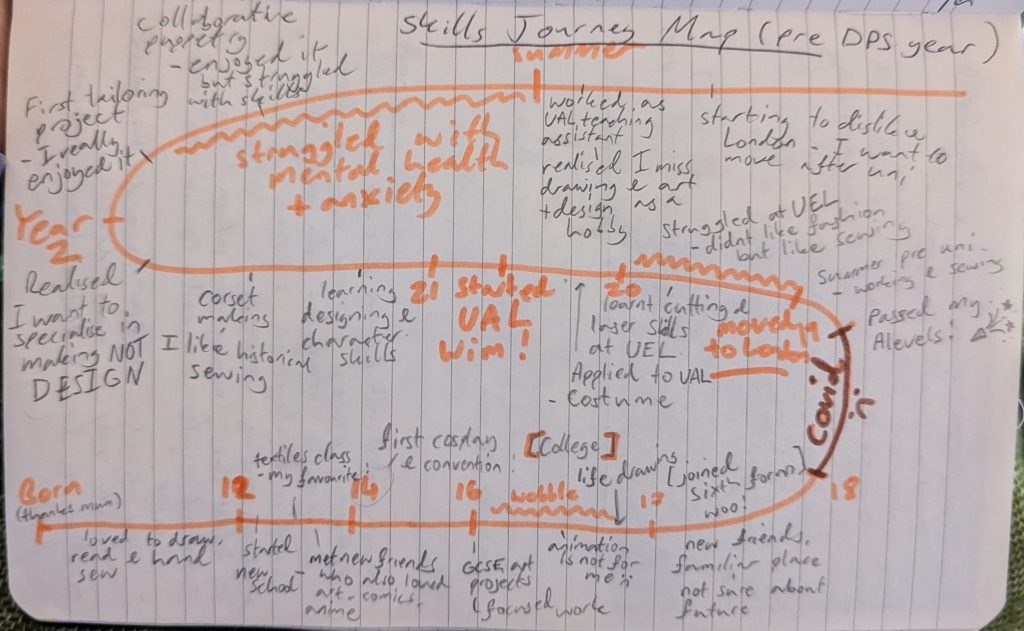 Skills Journey Map (pre DPS year)
collaborative
puppetry
- enjoyed it
but struggled
with skills
First tailoring
project
- I really
enjoyed it
summer
struggled with
mental health
+ anxiety
worked as
UAL teaching
assistant
realised I miss
drawing & art
+ design as a
hobby
starting to dislike
London - I want to
move after uni
Year
2
Realised
I want to
specialise in
making NOT
DESIGN
corset
making
I like historical
sewing
learning
designing &
character
skills
21
started
UAL
wim!
20
learnt cutting &
laser skills
at UEL
Applied to UAL
- Costume
struggled at UEL
- didnt like fashion
but like sewing
moved
to
summer pre uni -
- working & sewing
Passed my
Alevels!
Covid
18
Born
(thanks mum)
loved to draw,
read & hand
sew
12
started
new
school
textiles class
- my favourite!
14
met new friends
- who also loved
art - comics,
anime
first cosplay
& convention!
16
GCSE art
projects
focused work
[College]
wobble
life drawing
animation
is not for
me :(
17
[joined
sixth form]
woo!
new friends,
familiar place
not sure about
future